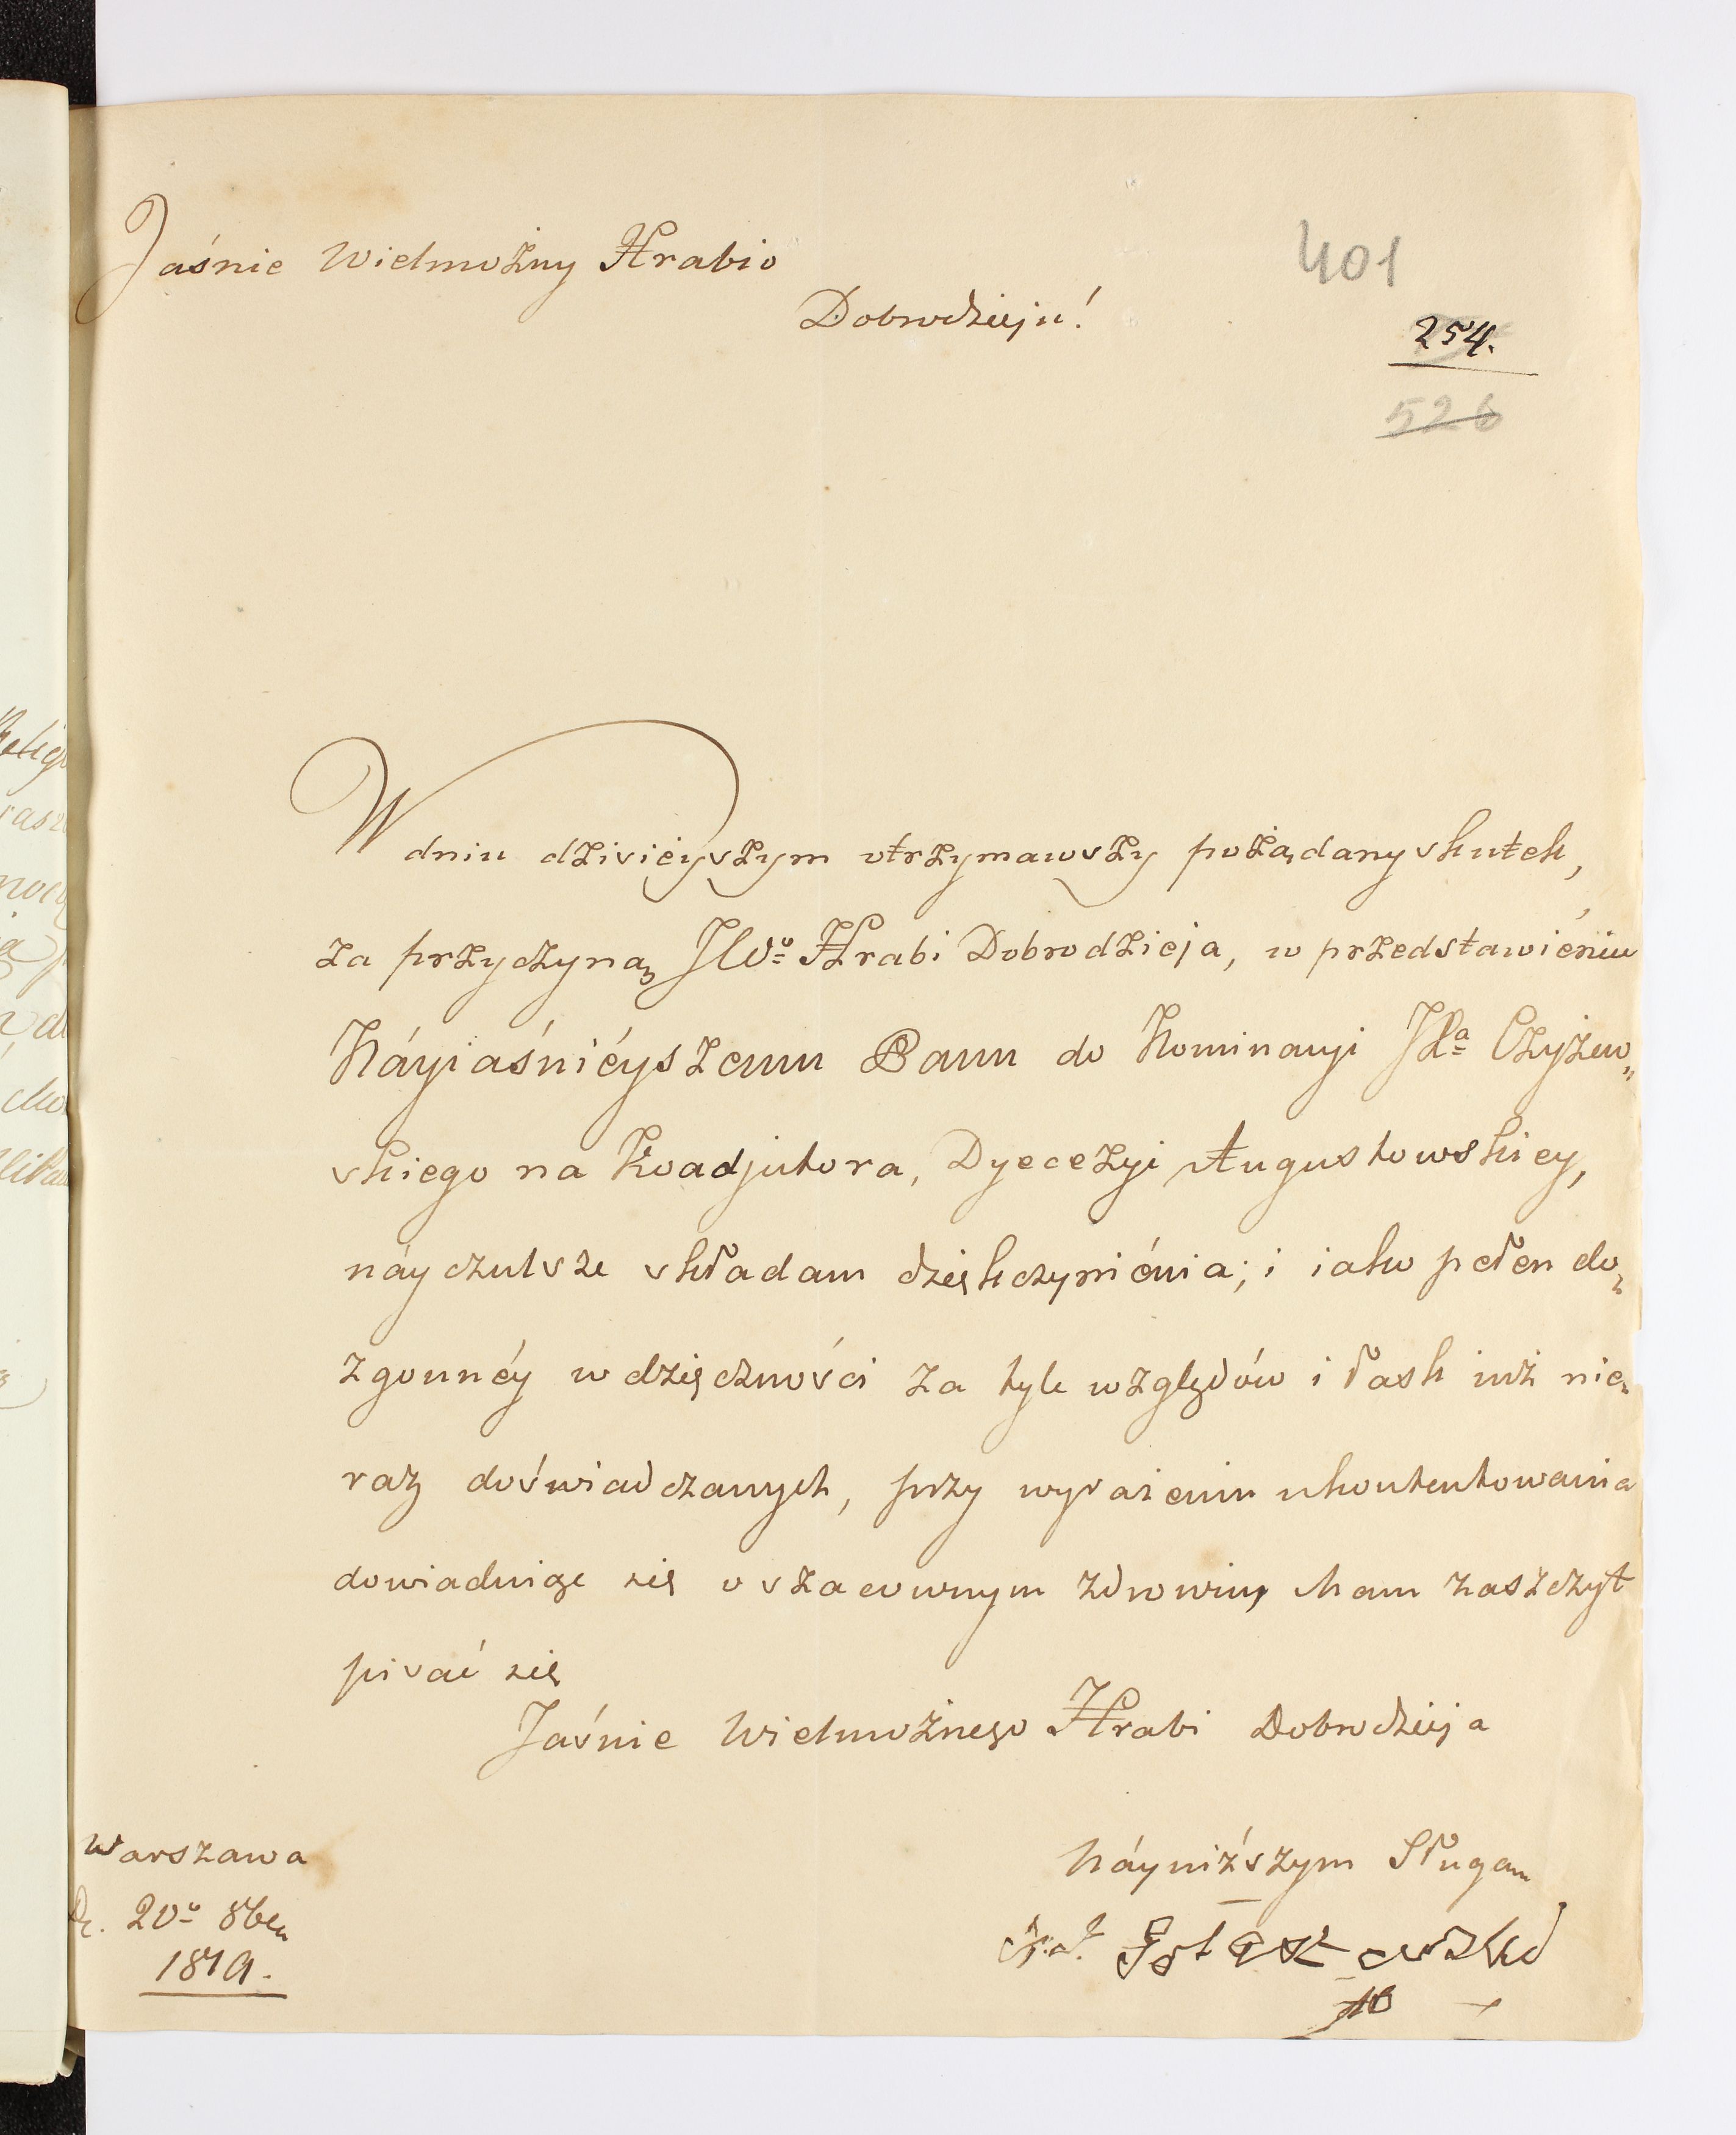 Jaśnie Wielmożny Hrabio
Dobrodzieju!
401
254.
526
W dniu dzisiéyszym otrzymawszy pożądany skutek,
za przyczyną JWo Hrabi Dobrodzieja, w przedstawieniu
Náyiaśniéyszemu Panu do Nominacyi JXa Czyżew„
skiego na Koadjutora, Dyecezyi Augustowskiey,
náyczulsze składam dziękczyniénia; i iako pełen do„
zgonnéy wdzięczności za tyle względów i łask iuż nie„
raz doświadczanych, przy wyrażeniu ukontentowania
dowiaduiąc się o szacownym zdrowiu, mam zaszczyt
pisać się
Jaśnie Wielmożnego Hrabi Dobrodzieja
Náyniższym Sługą
Warszawa
D. 20o 8bra
1819.